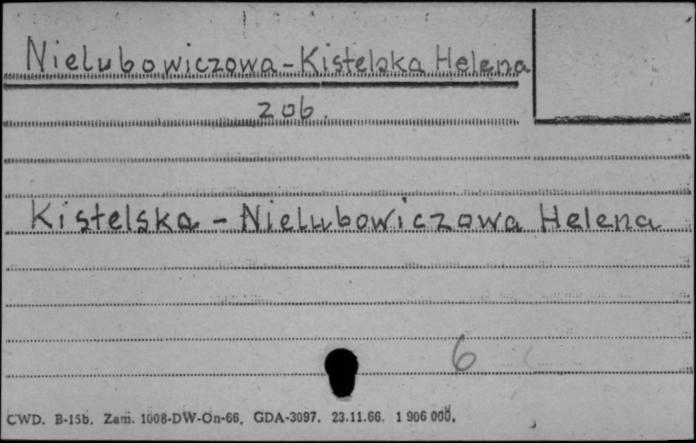 Nielubowiczowa-Kistelska Helena
zob.
Kistelska - Nielubowiczowa Helena
6
CWD. B-15b. Zam. 1008-DW-On-66, GDA-3097. 23.11.66. 1 906 000.